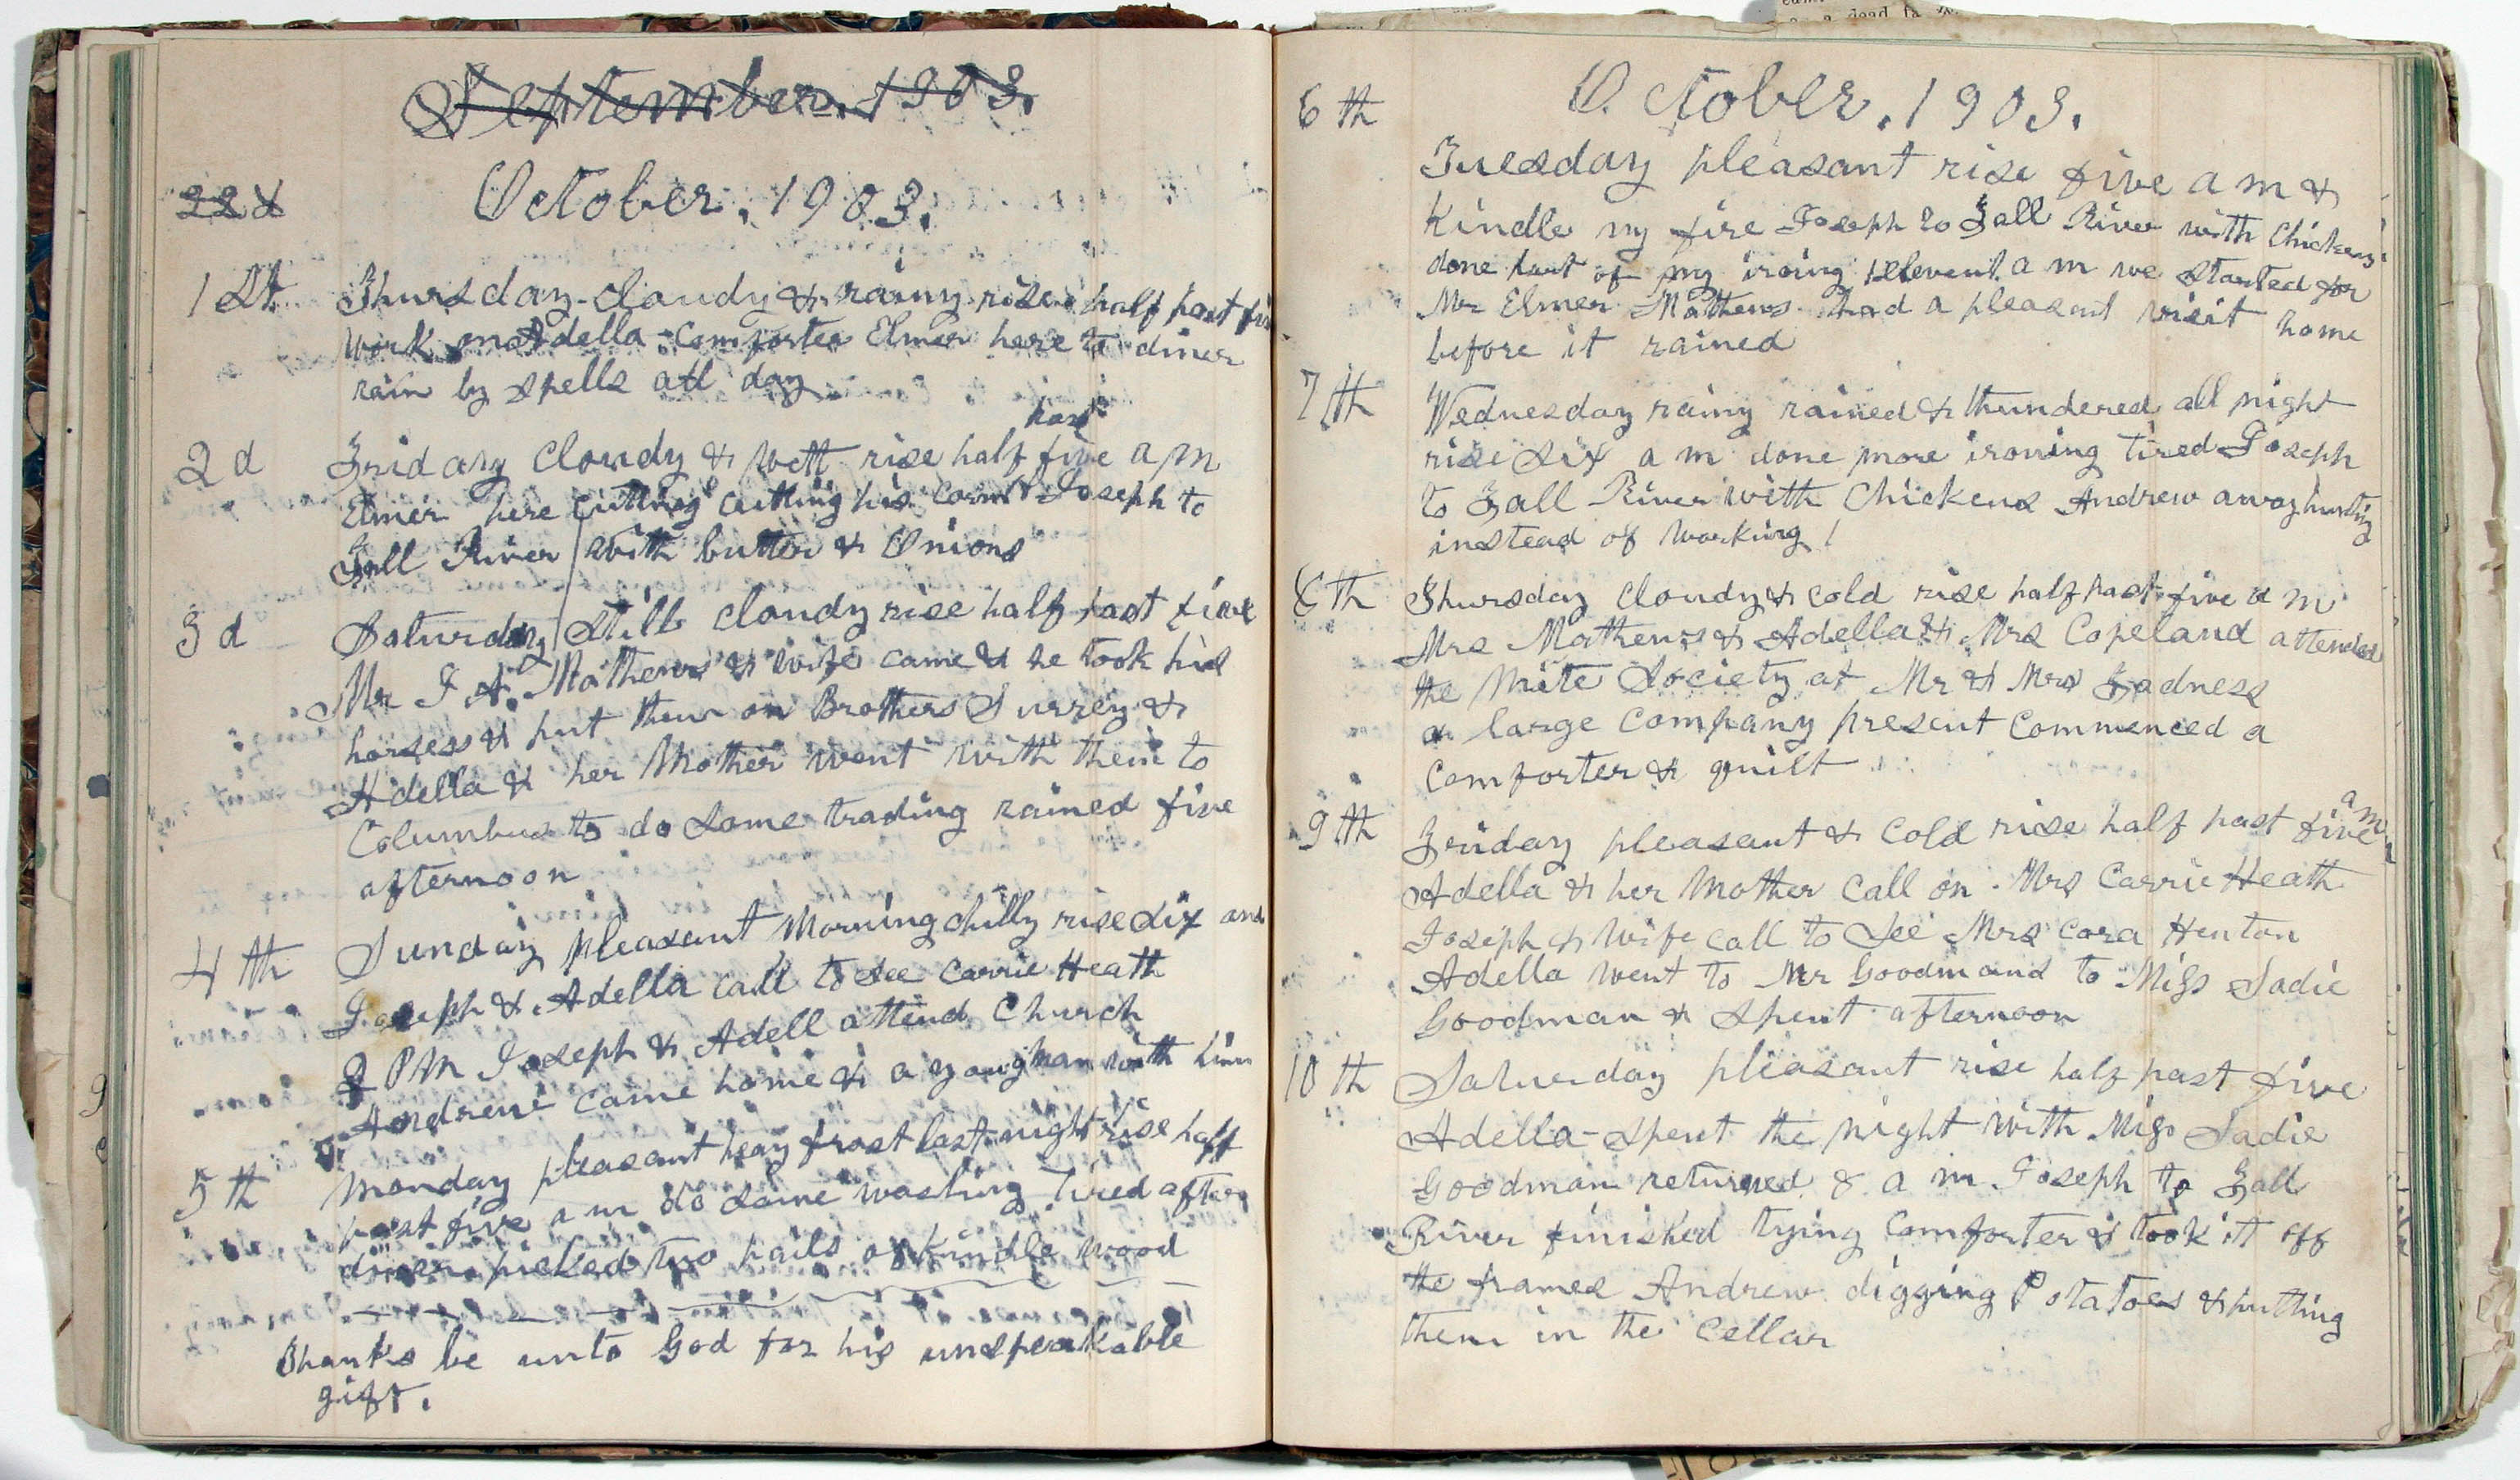 September. 1903.
22d
October. 1903.
1 St Thursday cloudy & rainy rise half past five
work on Adella comforter Elmer here to diner
rain by spells all day
past
2 d Friday Cloudy & wett rise half five a m
Elmer here cutting cutting his corn Joseph to
Fall River with butter & Onions
3 d Saturday still cloudy rise half past five
Mr I A. Mathews & wife came & he took his
horses & put them on Brothers Surrey &
Adella & her Mother went with them to
Columbus to do some trading rained five
afternoon
4 th Sunday pleasant Morning chilly rise six and
Joseph & Adella call to see Carrie Heath
2 PM Joseph & Adell attend Church
Andrew came home & a youg man with him
5 th Monday pleasant heay frost last night rise half
past five a m do some washing Tired after
diner picked two pails of Kindle wood
Thanks be unto God for his unspeakable
gift.
October. 1903.
6 th
Tuesday pleasant rise five a m &
Kindle my fire Joseph to Fall River with Chickens
done part of my ironig elevent a m we started for
Mr Elmer Mathews had a pleasant visit home
before it rained
7 th Wednesday rainy rained & thundered all night
rise six a m done more ironing tired Joseph
to Fall River with Chickens Andrew away huntig
instead of working !
8 th Thursday Cloudy & cold rise half past five a m
Mrs Mathews & Adella & Mrs Copeland attended
the Mite Society at Mr & Mrs
a large company present commenced a
comforter & quilt
a m
9 th Friday pleasant & cold rise half past five
Adella & her Mother call on Mrs Carrie Heath
Joseph & wife call to See Mrs Cora Henton
Adella went to Mr Goodmans to Miss Sadie
Goodman & spent afternoon
10 th Saturday pleasant rise half past five
Adella spent the night with Miss Sadie
Goodman returned 8 a m Joseph to Fall
River finished tying Comforter & took it off
the frames Andrew digging Potatoes & putting
them in the Cellar